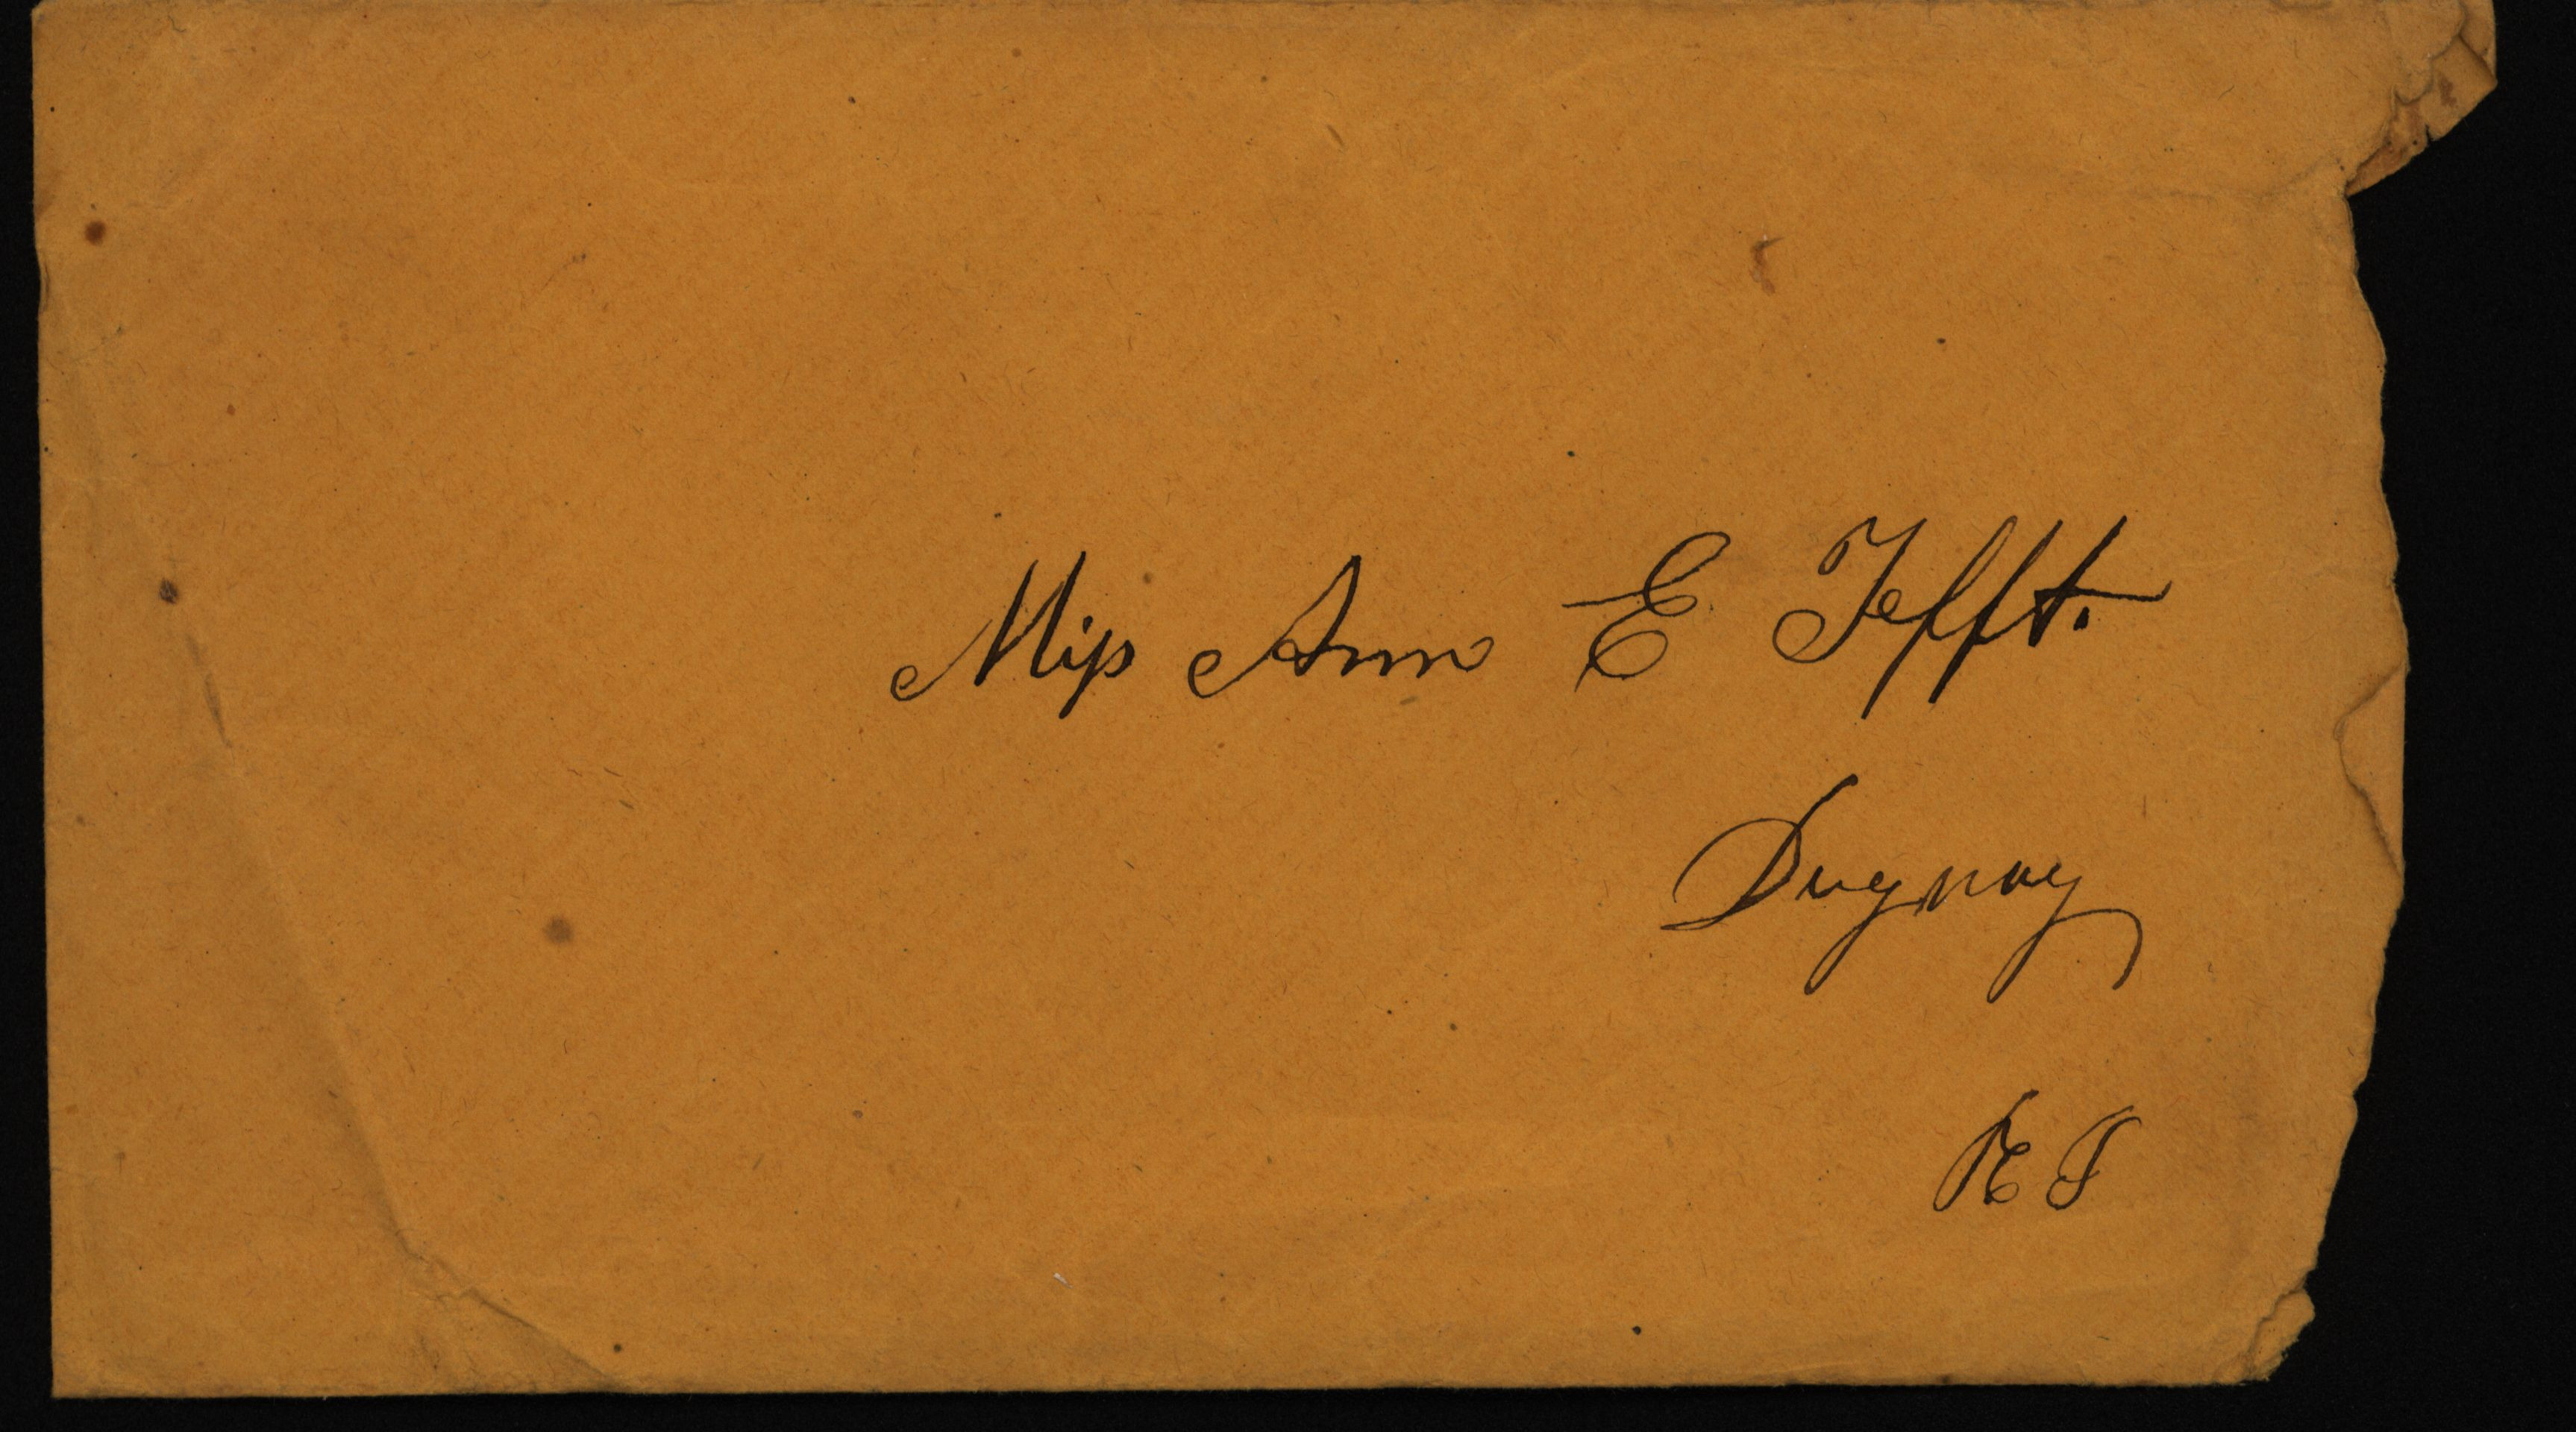 Miss Ann E Tefft.
Dugway
R I